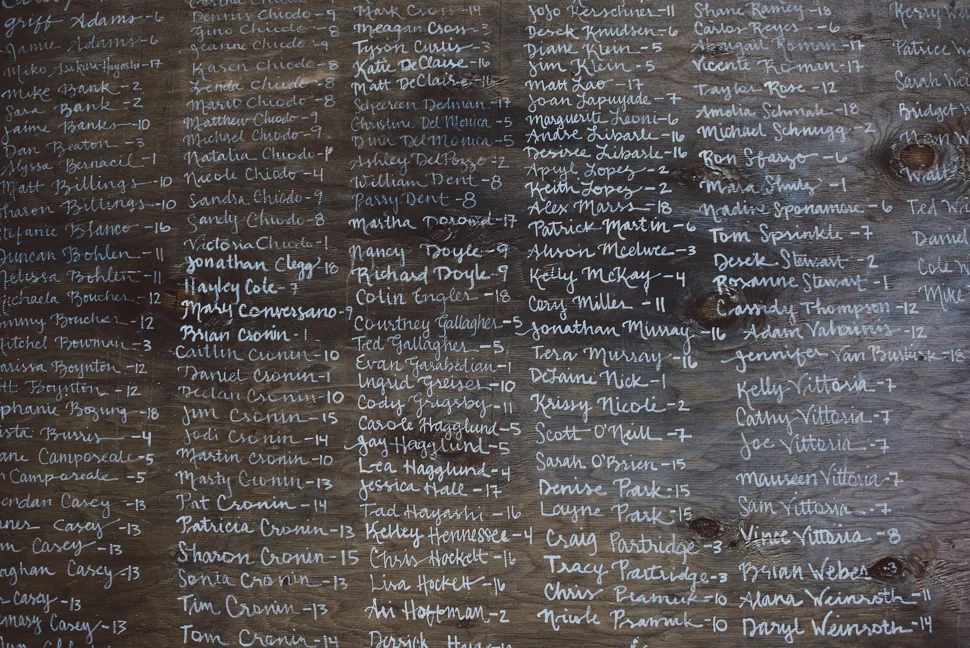 Griff Adams-6
Jamie Adams-6
Miko -17
Mike Bank-2
Sara Bank-2
Jaime Banks-10
Dan Beaton-3
Alyssa Bernacil-1
Matt Billings-10
Sharon Billings-10
Stefanie Blanco-16
Duncan Bohlen-11
Melissa Bohlen-11
Michaela Boucher-12
Boucher-12
Mitchel Bowman-3
Boynton-12
Boynton-12
Bozung-18
Burris-4
Camporeale-5
Camporeale-5
Casey-13
Casey-13
Casey-13
Casey-13
Casey-13
Casey-13
Dennis Chiodo-9
Gino Chiodo-8
Jeanne Chiodo-9
Karen Chiodo-8
Linda Chiodo-8
Mario Chiodo-8
Matthew Chiodo-9
Michael Chiodo-9
Natalia Chiodo-
Nicole Chiodo-4
Sandra Chiodo-9
Sandy Chiodo-8
Victoria Chiodo-1
Jonathan Clegg-18
Hayley Cole-7
Mary Conversano-9
Brian Cronin-1
Caitlin Cronin-10
Daniel Cronin-1
Declan Cronin-10
Jim Cronin-15
Jodi Cronin-14
Martin Cronin-10
Marty Cronin-13
Pat Cronin-14
Patricia Cronin-13
Sharon Cronin-15
Sonia Cronin-13
Tim Cronin-13
Tom Cronin-14
Mark Cross-14
Meagan Cross-
Tyson Curtis-3
Katie DeClaire-16
Matt DeClaire-16
Shereen Dedman-17
Christina Del Monica-5
Dina Del Monica-5
Ashley DelPozzo-2
William Dent-8
Passy Dent-8
Martha Dorond-17
Nancy Doyle-9
Richard Doyle-9
Colin Engler-18
Courtney Gallagher-5
Ted Gallagher-5
Evan Garabedian-1
Ingrid Greiser-10
Cody Grigsby-11
Carole Hagglund-5
Jay Hagglund-5
Lea Hagglund-4
Jessica Hall-17
Tad Hayashi-16
Kelley Hennessee-4
Chris Hockett-16
Lisa Hockett-16
Ari Hoffman-2
Derrick
JoJo Kerschner-11
Derek Knudsen-6
Diane Klein-5
Jim Klein-5
Matt Lao-17
Joan Lapuyade-7
Marguerite Leoni-6
Andre Libarle-16
Desiree Libarle-16
Apryl Lopez-2
Keith Lopez-2
Alex Marrs-18
Patrick Martin-6
Alison McElwee-3
Kelly McKay-4
Cory Miller-11
Jonathan Murray-16
Tera Murray-16
DeLaine Nick-1
Krissy Nicole-2
Scott O'Neill-7
Sarah O'Brien-15
Denise Park-15
Layne Park-15
Craig Partridge-3
Tracy Partridge-3
Chris Pramuk-10
Nicole Pramuk-10
Shane Ramey-18
Carlos Reyes-6
Abigail Roman-17
Vicente Roman-17
Taylor Rose-12
Amelia Schmalz-18
Michael Schnugg-2
Ron Sfarzo-6
Mara Shulz-1
Nadine Sponamore-6
Tom Sprinkle-7
Derek Stewart-2
Roxanne Stewart-1
Cassidy Thompson-12
Adam -12
Jennifer Van Buskirk-18
Kelly Vittoria-7
Cathy Vittoria-7
Joe Vittoria-7
Maureen Vittoria-7
Sam Vittoria-7
Vince Vittoria-8
Brian Weber-3
Alana Weinroth-11
Daryl Weinroth-14
Kerry
Patrice W
Sarah
Bridget
Walt
Ted
Daniel
Cole
Mike